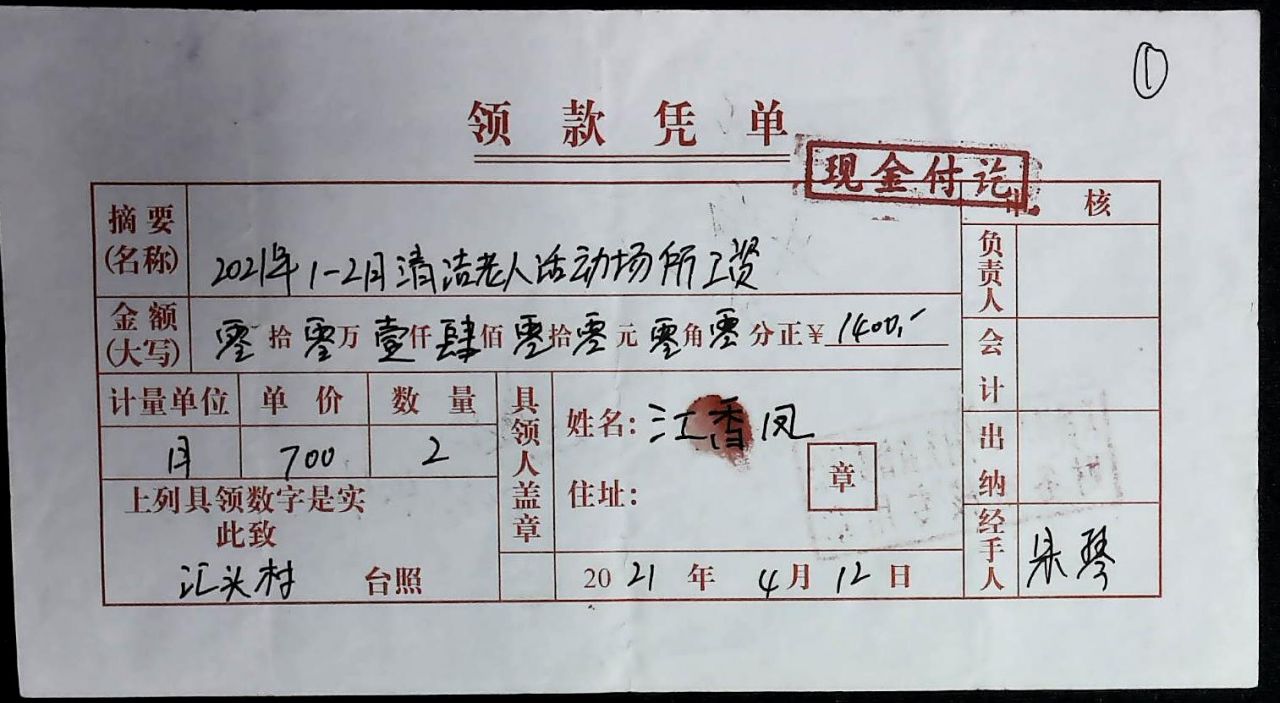 ①
领款凭单
现金付讫
审核
摘要(名称) 2021年1-2月清洁老人活动场所工资
金额(大写) 零拾零万壹仟肆佰零拾零元零角零分正¥1400.-
计量单位 单价 数量
月 700 2
上列具领数字是实
此致
江头村 台照
具领人盖章
姓名：江香凤
住址：
章
2021年4月12日
负责人
会计
出纳
经手人 朱琴